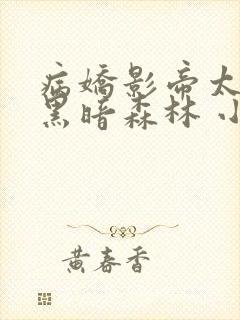 病嬌影帝太
黑暗森林 小
黃春香